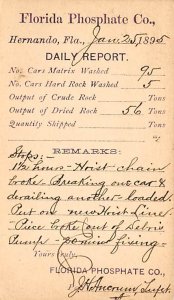 Florida Phosphate Co.,
Hernando, Fla., Jan. 25, 1895
DAILY REPORT.
No. Cars Matrix Washed 95
No. Cars Hard Rock Washed 5
Output of Crude Rock Tons
Output of Dried Rock 56 Tons
Quantity Shipped Tons
REMARKS:
Stops:-
1 1/2 hours - Hoist chain
broke - Breaking one car &
derailing another - loaded.
Put on new Hoist Line
Piece broke out of
Pump - 20 min fixing -
Yours truly,
FLORIDA PHOSPHATE CO.,
Supt.